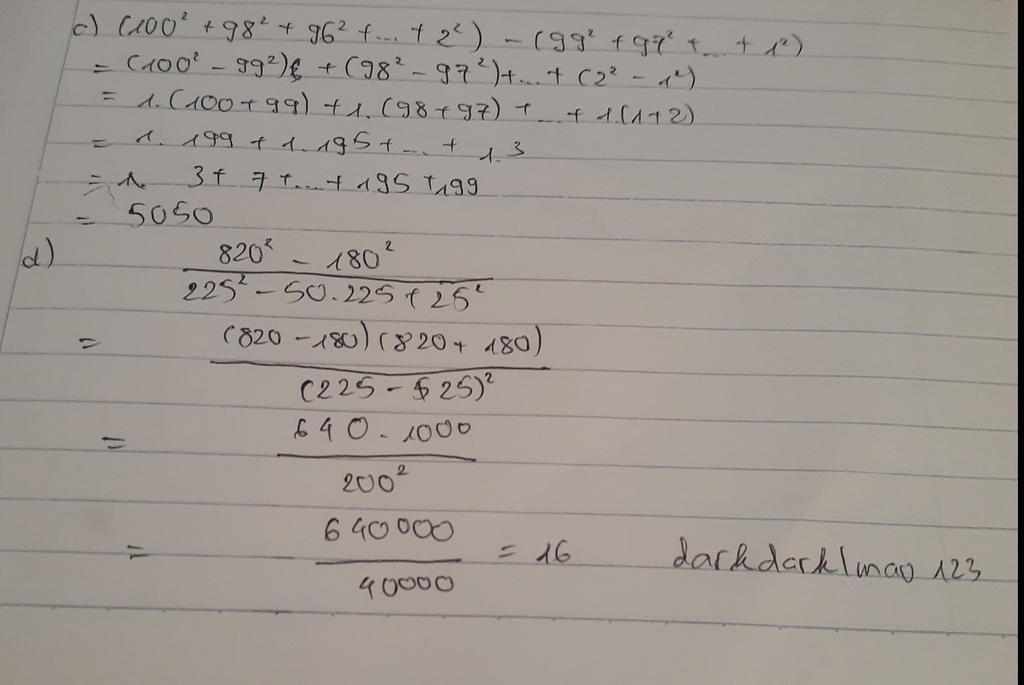 c) (100² + 98² + 96² + ... + 2²) - (99² + 97² + ... + 1²)
= (100² - 99²) + (98² - 97²) + ... + (2² - 1²)
= 1.(100 + 99) + 1.(98 + 97) + ... + 1.(1 + 2)
= 1. 199 + 1. 195 + ... + 1.3
= 3 + 7 + ... + 195 + 199
= 5050
d) 820² - 180²
225² - 50.225 + 25²
= (820 - 180)(820 + 180)
(225 - 25)²
= 640 . 1000
200²
= 640000
40000
= 16 darkdarklmao 123